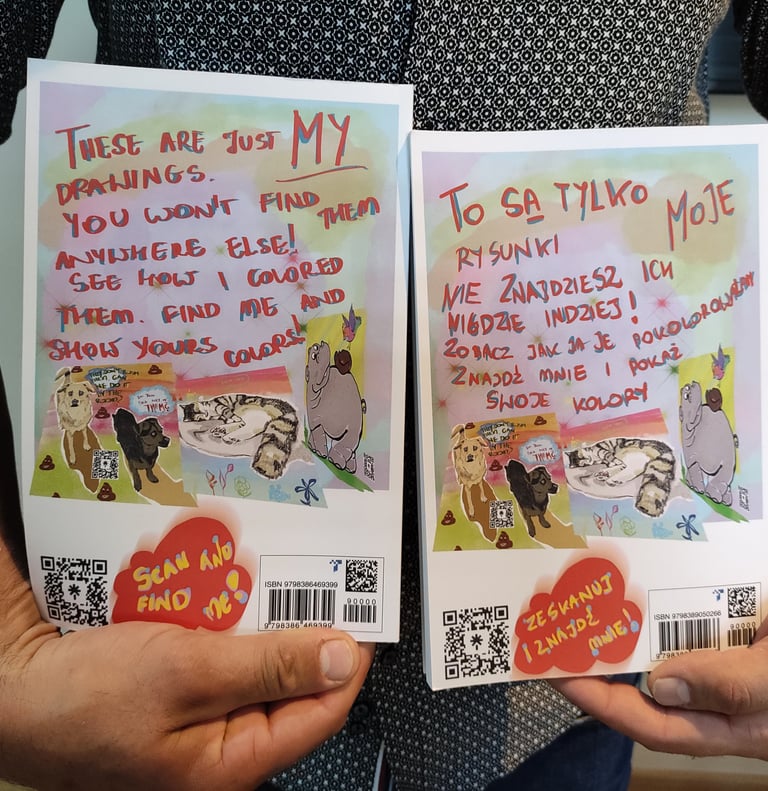 THESE ARE JUST MY
DRAWINGS.
YOU WON'T FIND THEM
ANYWHERE ELSE!
SEE HOW I COLORED
THEM. FIND ME AND
SHOW YOURS COLORS!
SCAN AND
FIND ME!
ISBN 9798386469399
90000
9 798386 469399
TO SĄ TYLKO MOJE
RYSUNKI
NIE ZNAJDZIESZ ICH
NIGDZIE INDZIEJ!
ZOBACZ JAK JA JE POKOLOROWAŁAM
ZNAJDŹ MNIE I POKAŻ
SWOJE KOLORY
ZESKANUJ
I ZNAJDŹ
MNIE!
ISBN 9798389050266
90000